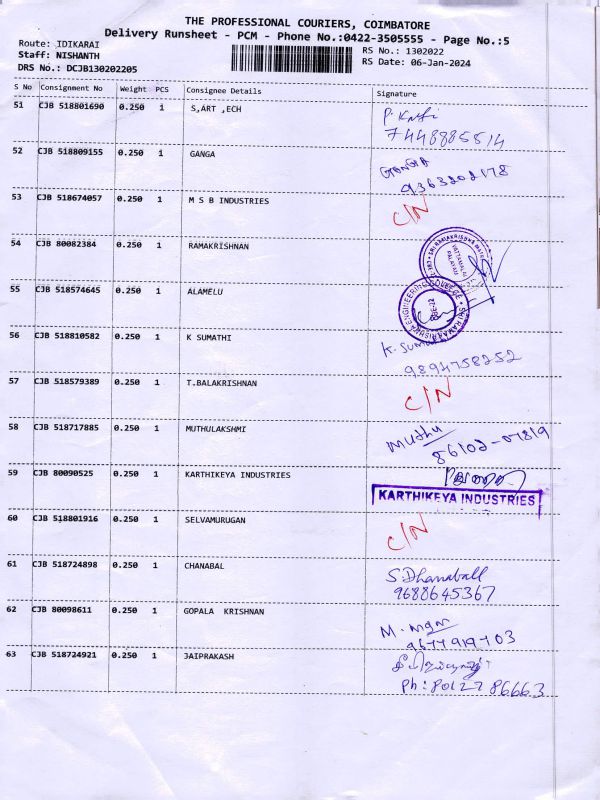 THE PROFESSIONAL COURIERS, COIMBATORE
Delivery Runsheet - PCM - Phone No.:0422-3505555 - Page No.:5
Route: IDIKARAI
Staff: NISHANTH
DRS No.: DCJB130202205
RS No.: 1302022
RS Date: 06-Jan-2024
S No Consignment No Weight PCS Consignee Details Signature
51 CJB 518801690 0.250 1 S,ART ,ECH
7448885514
52 CJB 518809155 0.250 1 GANGA GANGA
9363202178
53 CJB 518674057 0.250 1 M S B INDUSTRIES C/N
54 CJB 80082384 0.250 1 RAMAKRISHNAN
55 CJB 518574645 0.250 1 ALAMELU
56 CJB 518810582 0.250 1 K SUMATHI K. Sumathi
9894758252
57 CJB 518579389 0.250 1 T.BALAKRISHNAN C/N
58 CJB 518717885 0.250 1 MUTHULAKSHMI Muthu
86102-07819
59 CJB 80090525 0.250 1 KARTHIKEYA INDUSTRIES
KARTHIKEYA INDUSTRIES
60 CJB 518801916 0.250 1 SELVAMURUGAN C/N
61 CJB 518724898 0.250 1 CHANABAL S.Dhanaball
9688645367
62 CJB 80098611 0.250 1 GOPALA KRISHNAN M.
9677919703
63 CJB 518724921 0.250 1 JAIPRAKASH
Ph: 8012786663